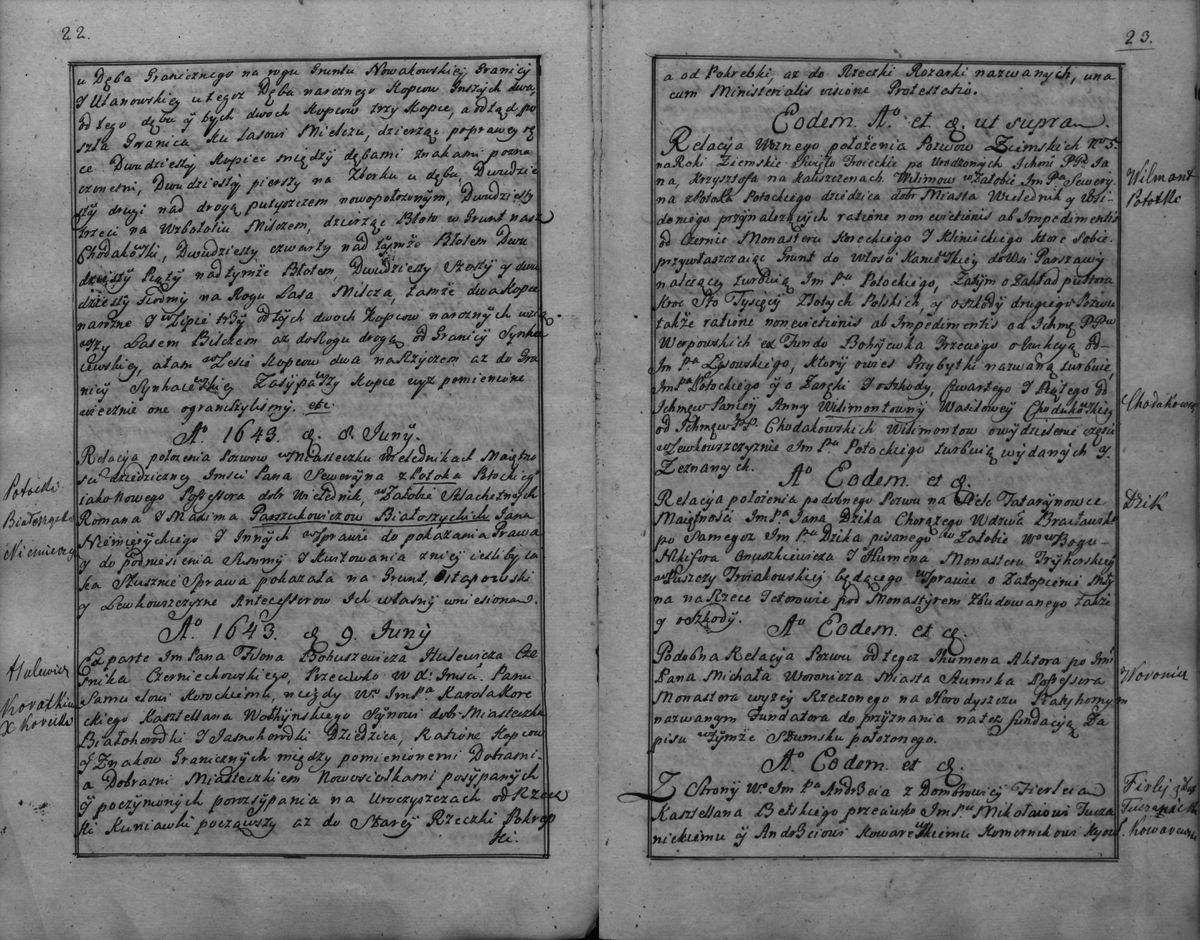 22.
u Dęba Granicznego na rogu Gruntu Nowakowskiey Granicy
Y Ulanowskiey u tegoż Dęba narożnego Kopców Inszych dwa,
od tego dębu y tych dwoch Kopcow trzy Kopce, a odtąd po
szła Granica ku Lasowi Mielczu, dzierżąc poprawey rę
ce Dwudziesty Kopiec między dębami znakami pozna
czonemi, Dwudziesty pierszy na Zborku u dębu, Dwudzie
sty drugi nad drogą putyszczem nowopołożonym, Dwudziesty
trzeci na Wzbołotiu Milczem, dzierżąc Błoto w Grunt nasz
Chodakowski, Dwudziesty czwarty nad tymże Błotem Dwu
dziesty Piąty nad tymże Błotem, Dwudziesty Szosty y dwu
dziesty siodmy na Rogu Lasa Milcza, tamże dwa Kopce
narożne Y w Lipie trzy od tych dwoch Kopcow narożnych
Lasem Bilczem aż do Rogu drogą od Granicy Synha
iewskiey, a tam w Lesie Kopcow dwa na Krzyżem aż do Gra
nicy Synhaiewskiey Zasypawszy Kopce wyż pomienione
wiecznie one ograniczyliśmy. etc.
Aº 1643. & 8 Juny.
Relacija położenia Pozwow w Miasteczku Wielednikach Maiętno
sci dziedziczney Imsci Pana Seweryna z Potoka Potockieg
iako Nowego Possessora dobr Wielednik, w Załobie Szlachetnych
Romana Y Maxima Paszukowiczow Białoszyckich Jana
Niemiryckiego Y Innych w Sprawie do pokazania Prawa
y do podniesienia Summy Y Kwitowania z niey iesliby ta
ka Słusznie Sprawa pokazała na Grunt, Ostapowski
y Lewkowszczyzne Antecessorow Ich własny wniesiona.
Aº 1643. & 9. Juny
Ex parte Im Pana Filona Bohuszewicza Hulewicza Cze
snika Czerniechowskiego, Przeciwko W di: Imsci Panu
Samuelowi Koreckiemu, niegdy We Im Pa Karola Kore
ckiego Kasztellana Wołhynskiego Synowi dobr Miasteczka
Białohorodki Y Jasnohorodki Dziedzica, Ratione Kopcow
y Znakow Granicznych między pomienionemi Dobrami.
a Dobrami Miasteczkiem Nowosiołkami posypanych
y poczynionych porozsypania na Uroczyszczach od Rzecz
ki Kuniawki począwszy aż do Starey Rzeczki Pokrep
ki.
Potocki
Niemiryc
Hulewicz
X Korecki
23.
a od Pokrebki, aż do Rzeczki Rozarki nazwanych, una
cum Ministerialis visione Protestatio.
Eodem. Aº. et &. ut supra.
Relacyja Woznego położenia Pozwow Ziemskich No 5.
na Roki Ziemskie Swięto Troieckie po Urodzonych Ichmć PP Ja
na, Krzysztofa na Kaliszczenach Wilimow w Załobie Im Pa Sewery
na z Potoka Potockiego dziedzica dobr Miasta Wielednik y
domiego przynależących ratione non evictionis ab Impedimentis
od Czernic Monasteru Koreckiego Y Klinieckiego ktore Sobie
przywłaszczaiąc Grunt do Włosci do Wsi Parszawy
należący turbuią Im Pa Potockiego, Zatym o Zakład pułtora
kroć Sto Tysięcy Złotych Polskich, y o szkody drugiego Pozwu
także ratione non evictionis ab Impedimentis od Ichmć PPw
Werpowskich ex Fundo Bohijewka Trzeciego o Ewikcyą od
Im Pa Lysowskiego, ktory owies Przybytki nazwaną turbuie,
Im Pa Potockiego y o Zaręki Y o szkody, Czwartego Y Piątego od
Ichmćw Paniey Anny Wilimontowny Wasilowey Chodakowskiey
od Ichmćw PP. Chodakowskich Wilimontow o wydzielenie częsci
w Lewkowszczyznie Im Pu Potockiego turbuią wydanych y
Zeznanych.
Aº Eodem. et &.
Relacija położenia podobnego Pozwu na Dele Tatarynowce
Maiętnosci Im Pa Jana Dzika Chorążego Wdztwa Bracławsk
po Samegoż Im Pa Dzika pisanego w Załobie Wo w Bogu
Nikifora Onuszkiewicza Y Humena Monasteru Tryhorskiey
w Puszczy Troiakowskiey będącego w Sprawie o Zatopienie Mły
na na Rzece Teterowie pod Monastyrem Zbudowanego także
y o szkody.
Aº Eodem. et &.
Podobna Relacija Pozwu od tegoż Ihumena Aktora po Imć
Pana Michała Woronicza Miasta Skumska Possessora
Monastera wyżey Rzeczonego na Horodyszczu
nazwanym Fundatora do przyznania na też fundacyą Za
pisu w Tymże Skumsku położonego.
Aº Eodem. et &.
Z Strony We Im Pa Andrzeia z Dombrowicy Firleia
Kasztellana Bełskiego przeciwko Im Pu Mikołaiowi Tucza
nickiemu y Andrzeiowi Kowarewskiemu Komornikowi Kyow
Wilmont
Potocki
Chodakow
Dzik
Woronic
Firley z
Kowarew